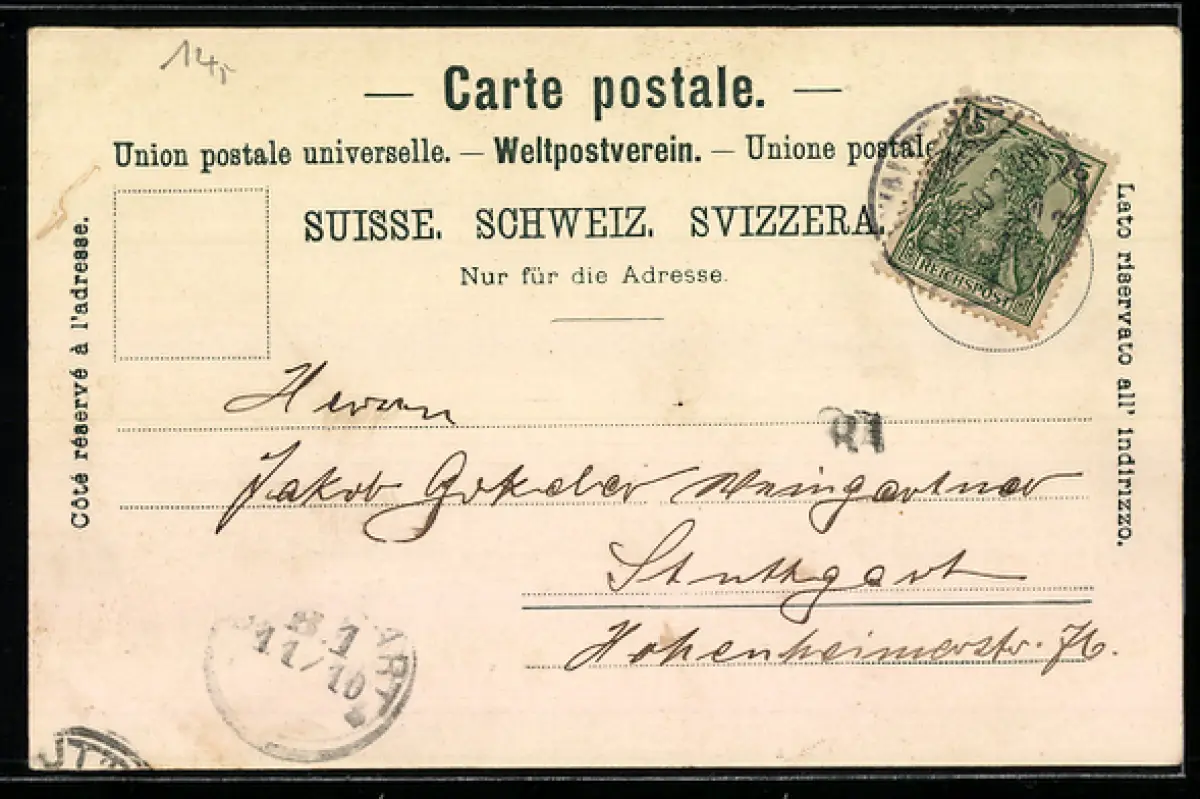 14,-
— Carte postale. —
Union postale universelle. — Weltpostverein. — Unione postale
SUISSE. SCHWEIZ. SVIZZERA.
Nur für die Adresse.
Côté réservé à l'adresse.
Lato riservato all' indirizzo.
5 5
REICHSPOST
Herrn
Jakob Weingartner
Stuttgart
Hohenheimerstr.
ART
11/10
UTT